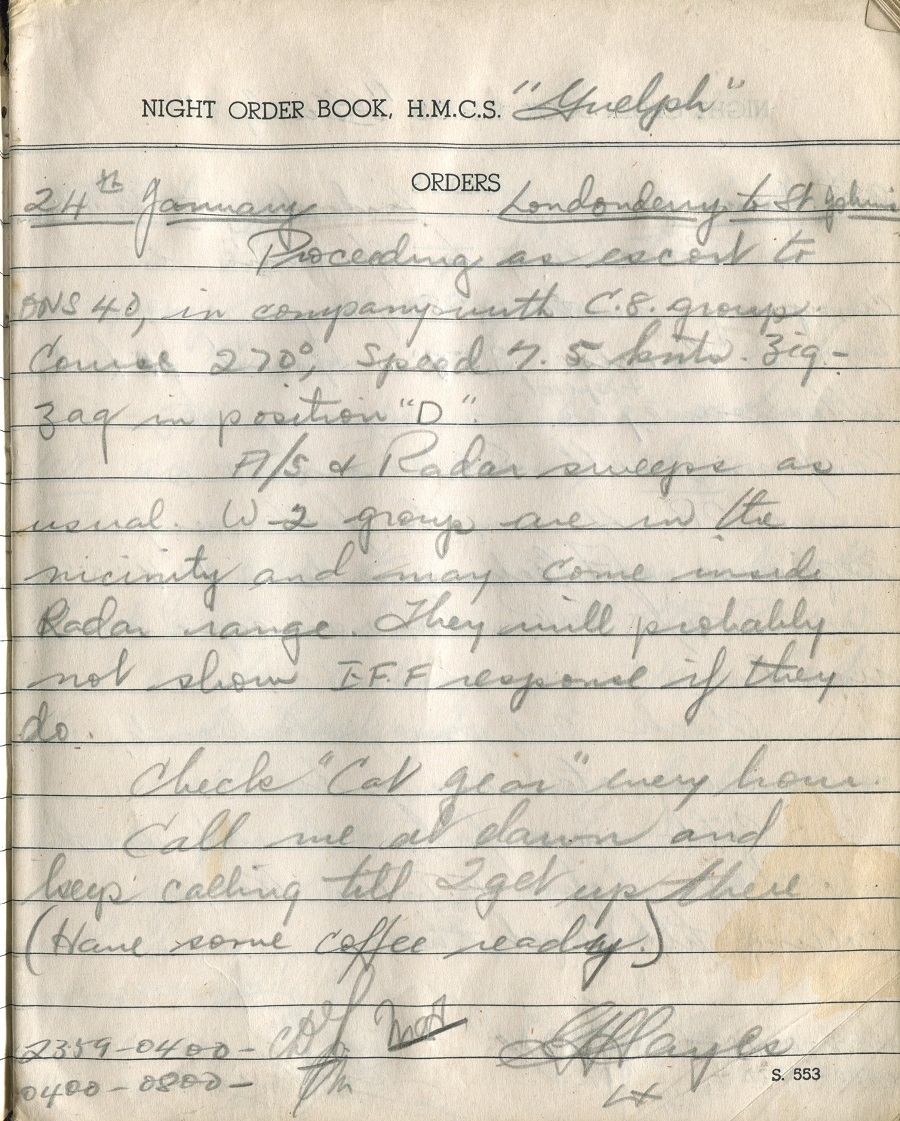 NIGHT ORDER BOOK, H.M.C.S. "Guelph"
ORDERS
24th January Londonderry to St. John's
Proceeding as escort to
ONS 40, in company with C.8. group.
Course 270°, Speed 7.5 knots. Zig-
zag in position "D".
A/S & Radar sweeps as
usual. W-2 group are in the
vicinity and may come inside
Radar range. They will probably
not show I.F.F response if they
do.
Check "Cat gear" every hour.
Call me at dawn and
keep calling till I get up there.
(Have some coffee ready.)
GHHayes
2359-0400-
S. 553
0400-0800-
Lt